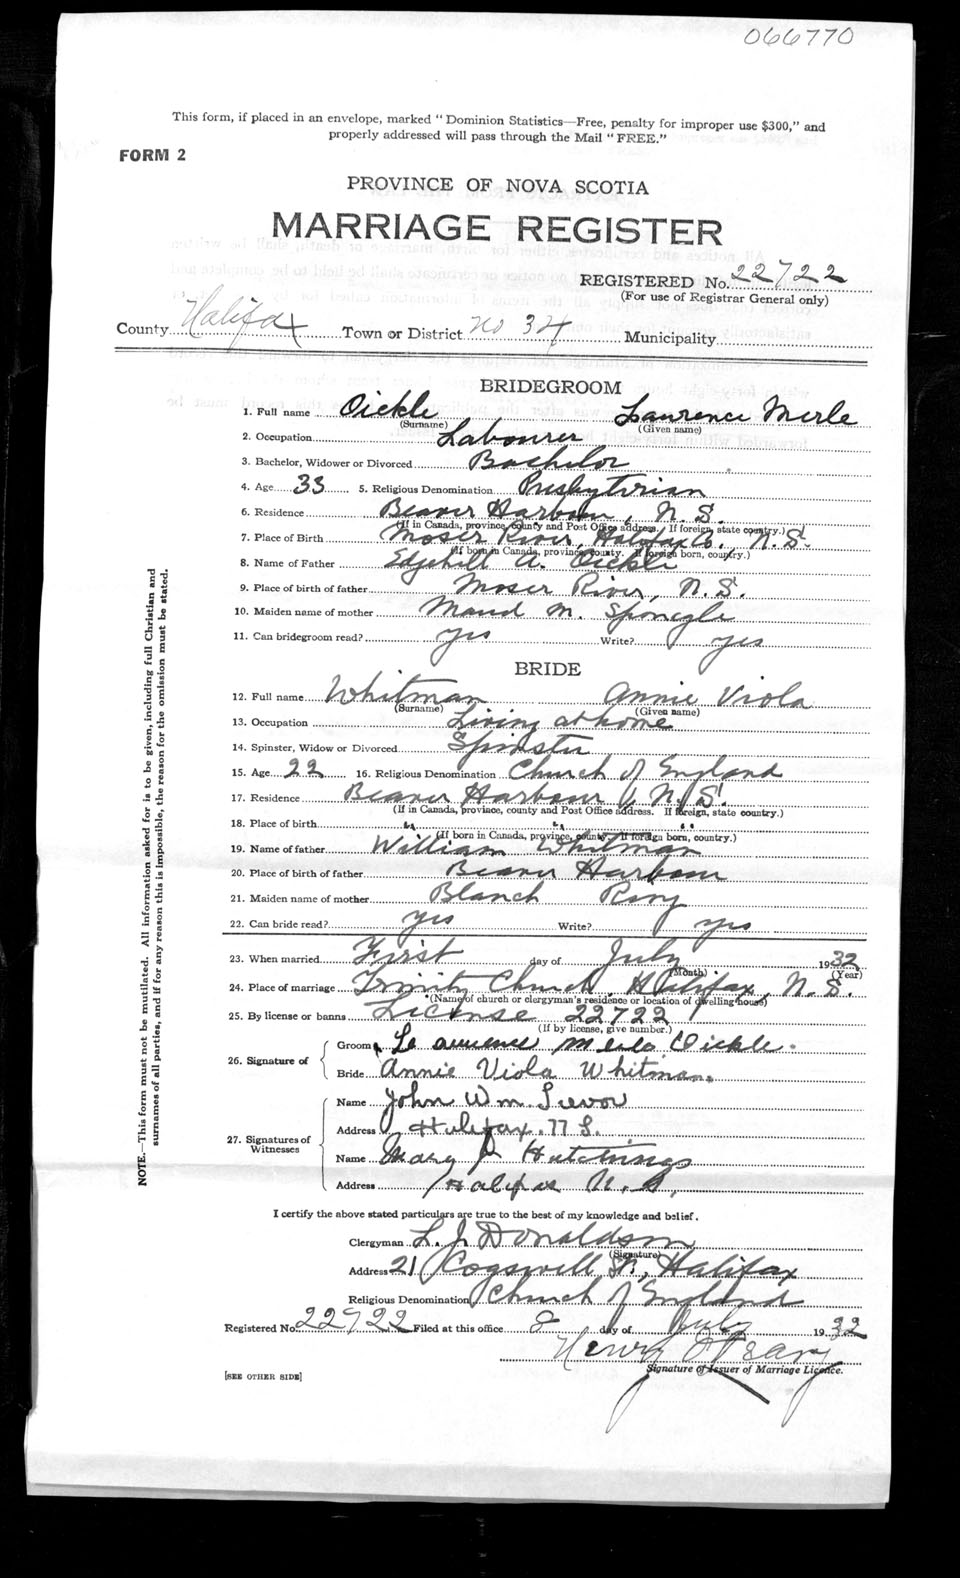 066770
This form, if placed in an envelope, marked "Dominion Statistics—Free, penalty for improper use $300," and
properly addressed will pass through the Mail "FREE."
FORM 2
PROVINCE OF NOVA SCOTIA
MARRIAGE REGISTER
REGISTERED No. 22722
(For use of Registrar General only)
County Halifax Town or District No 34 Municipality
BRIDEGROOM
1. Full name Oickle Lawrence Merle
(Surname) (Given name)
2. Occupation Labourer
3. Bachelor, Widower or Divorced Bachelor
4. Age 33 5. Religious Denomination Presbyterian
6. Residence Beaver Harbour, N.S.
(If in Canada, province, county and Post Office address. If foreign, state country.)
7. Place of Birth Moser River, Halifax Co., N.S.
(If born in Canada, province, county. If foreign born, country.)
8. Name of Father Edgehill A. Oickle
9. Place of birth of father Moser River, N.S.
10. Maiden name of mother Maud M. Sponagle
11. Can bridegroom read? yes Write? yes
BRIDE
12. Full name Whitman Annie Viola
(Surname) (Given name)
13. Occupation Living at home
14. Spinster, Widow or Divorced Spinster
15. Age 22 16. Religious Denomination Church of England
17. Residence Beaver Harbour, N.S.
(If in Canada, province, county and Post Office address. If foreign, state country.)
18. Place of birth " " "
(If born in Canada, province, county. If foreign born, country.)
19. Name of father William Whitman
20. Place of birth of father Beaver Harbour
21. Maiden name of mother Blanch
22. Can bride read? yes Write? yes
23. When married First day of July 1932
(Month) (Year)
24. Place of marriage Trinity Church, Halifax, N.S.
(Name of church or clergyman's residence or location of dwelling house)
25. By license or banns License 22722
(If by license, give number.)
26. Signature of Groom Lawrence Merle Oickle
Bride Annie Viola Whitman
27. Signatures of Witnesses
Name John Wm. Trevor
Address Halifax. N S.
Name Mary J Hutchings
Address Halifax N. S.
I certify the above stated particulars are true to the best of my knowledge and belief.
Clergyman L. J. Donaldson
(Signature)
Address 21 Cogswell St., Halifax
Religious Denomination Church of England
Registered No. 22722 Filed at this office 8 day of July 1932
Henry
Signature of Issuer of Marriage Licence.
[SEE OTHER SIDE]
NOTE.—This form must not be mutilated. All information asked for is to be given, including full Christian and
surnames of all parties, and if for any reason this is impossible, the reason for the omission must be stated.